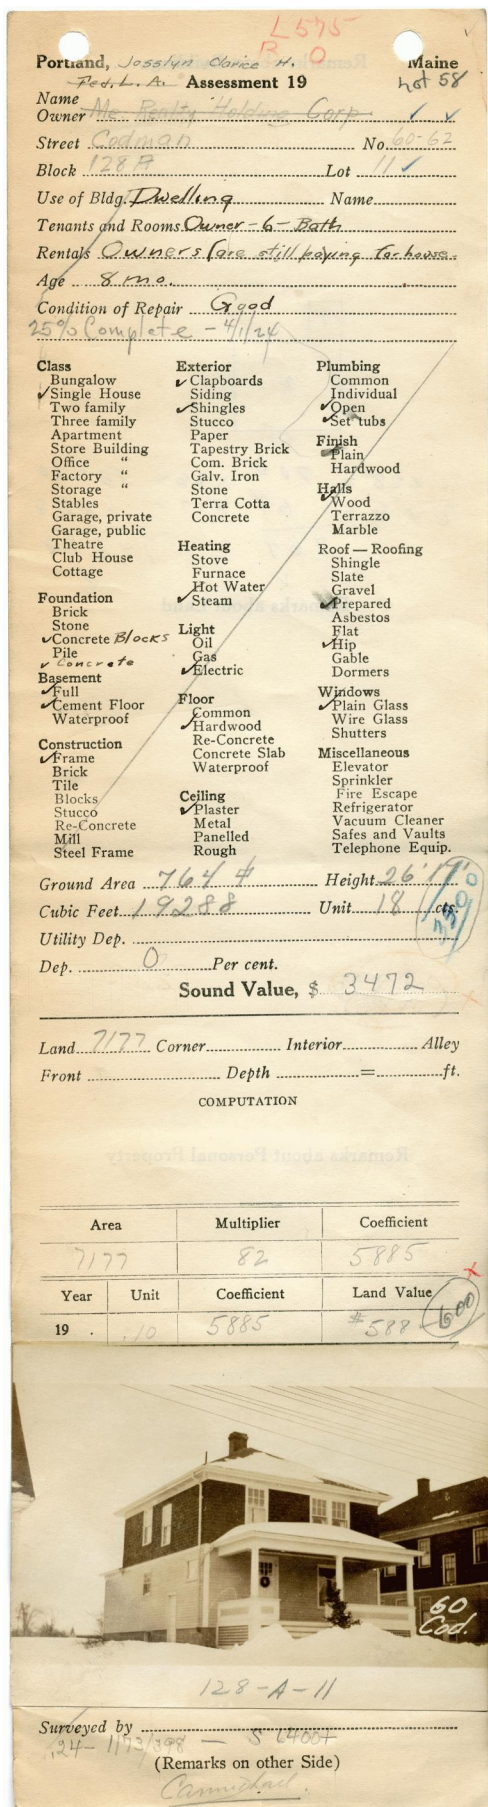 L 575
B 0
Portland, Josslyn Clarice H. Maine
Fed. L. A. Assessment 19 Lot 58
Name
Owner Me. Realty Holding Corp
Street Codman No. 60-62
Block 128 A Lot 11
Use of Bldg. Dwelling Name
Tenants and Rooms Owner-6-Bath
Rentals Owners (are still paying for house.
Age 8 mo.
Condition of Repair Good
25% Complete - 4/1/24
Class
Bungalow
Single House
Two family
Three family
Apartment
Store Building
Office "
Factory "
Storage "
Stables
Garage, private
Garage, public
Theatre
Club House
Cottage
Foundation
Brick
Stone
Concrete Blocks
Pile
Concrete
Basement
Full
Cement Floor
Waterproof
Construction
Frame
Brick
Tile
Blocks
Stucco
Re-Concrete
Mill
Steel Frame
Exterior
Clapboards
Siding
Shingles
Stucco
Paper
Tapestry Brick
Com. Brick
Galv. Iron
Stone
Terra Cotta
Concrete
Heating
Stove
Furnace
Hot Water
Steam
Light
Oil
Gas
Electric
Floor
Common
Hardwood
Re-Concrete
Concrete Slab
Waterproof
Ceiling
Plaster
Metal
Panelled
Rough
Plumbing
Common
Individual
Open
Set tubs
Finish
Plain
Hardwood
Halls
Wood
Terrazzo
Marble
Roof — Roofing
Shingle
Slate
Gravel
Prepared
Asbestos
Flat
Hip
Gable
Dormers
Windows
Plain Glass
Wire Glass
Shutters
Miscellaneous
Elevator
Sprinkler
Fire Escape
Refrigerator
Vacuum Cleaner
Safes and Vaults
Telephone Equip.
Ground Area 764 # Height 26' 17'
Cubic Feet 19288 Unit 18 cts.
3500
Utility Dep.
Dep. 0 Per cent.
Sound Value, $ 3472
Land 7177 Corner Interior Alley
Front Depth = ft.
COMPUTATION
Remarks about Personal Property
Area Multiplier Coefficient
7177 82 5885
Year Unit Coefficient Land Value
19 . .10 5885 $588 600
60
Cod.
128-A-11
Surveyed by
.24- 1173/398 — S 6400+
(Remarks on other Side)
Carmichael.